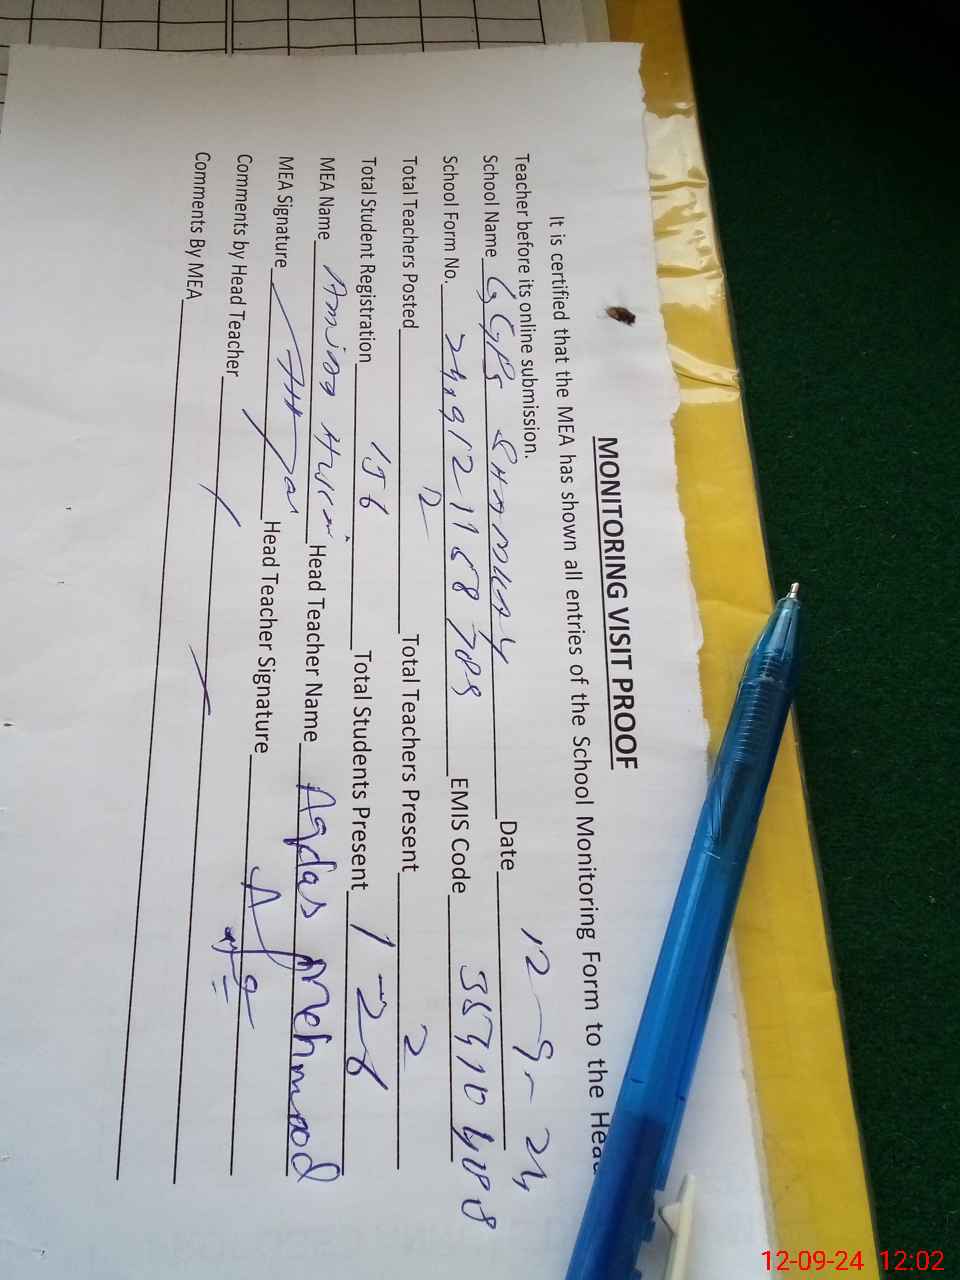 MONITORING VISIT PROOF
It is certified that the MEA has shown all entries of the School Monitoring Form to the Head
Teacher before its online submission.
School Name GGPS Date 12-9-24
School Form No. EMIS Code
Total Teachers Posted 2 Total Teachers Present 2
Total Student Registration 156 Total Students Present 126
MEA Name Head Teacher Name Aqdas Mehmood
MEA Signature Head Teacher Signature
Comments by Head Teacher
Comments By MEA
12-09-24 12:02